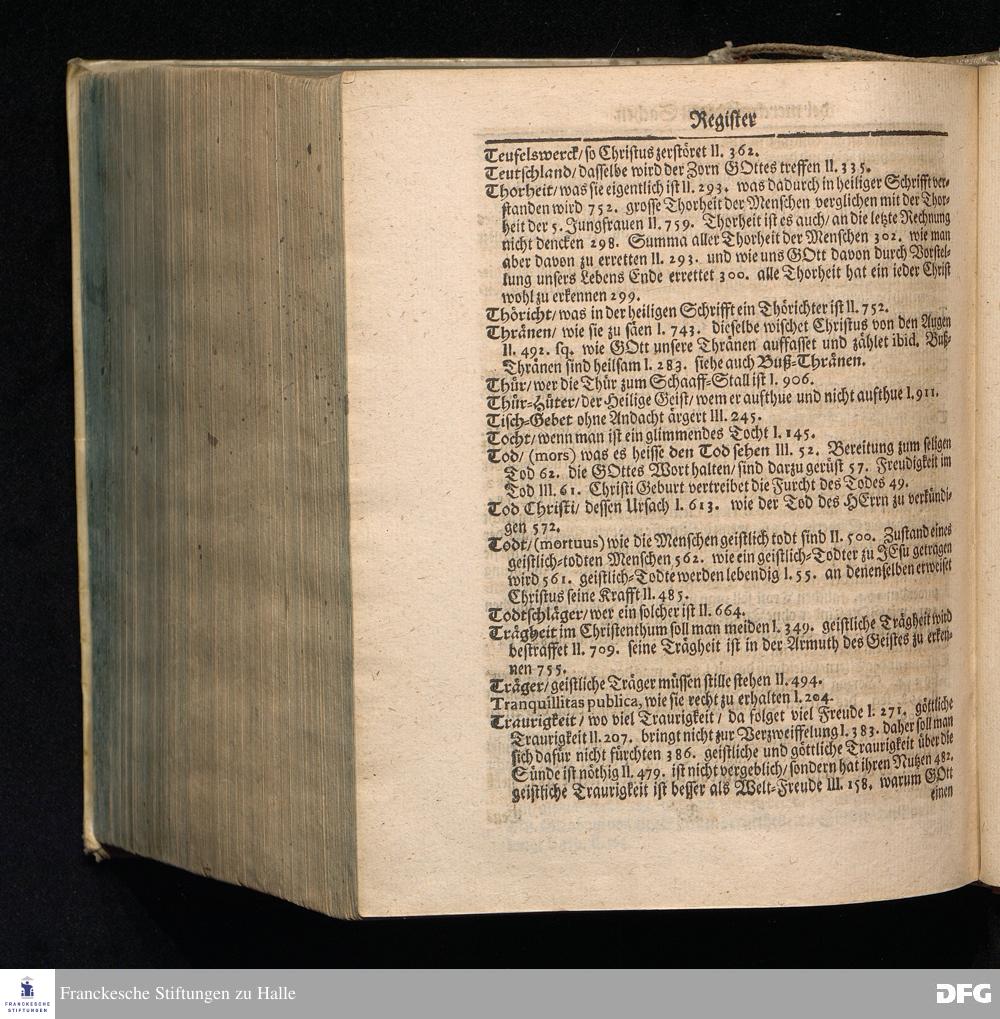 Register
Teufelswerck/ so Christus zerstöret II. 362.
Teutschland/ dasselbe wird der Zorn GOttes treffen II. 335.
Thorheit/ was sie eigentlich ist II. 293. was dadurch in heiliger Schrifft ver-
standen wird 752. grosse Thorheit der Menschen verglichen mit der Thor-
heit der 5. Jungfrauen II. 759. Thorheit ist es auch/ an die letzte Rechnung
nicht dencken 298. Summa aller Thorheit der Menschen 302. wie man
aber davon zu erretten II. 293. und wie uns GOtt davon durch Vorstel-
lung unsers Lebens Ende errettet 300. alle Thorheit hat ein ieder Christ
wohl zu erkennen 299.
Thöricht/ was in der heiligen Schrifft ein Thörichter ist II. 752.
Thränen/ wie sie zu säen I. 743. dieselbe wischet Christus von den Augen
II. 492. sq. wie GOtt unsere Thränen auffasset und zählet ibid. Buß-
Thränen sind heilsam I. 283. siehe auch Buß-Thränen.
Thür/ wer die Thür zum Schaaff-Stall ist I. 906.
Thür-Hüter/ der Heilige Geist/ wem er aufthue und nicht aufthue I. 911.
Tisch-Gebet ohne Andacht ärgert III. 245.
Tocht/ wenn man ist ein glimmendes Tocht I. 145.
Tod/ (mors) was es heisse den Tod sehen III. 52. Bereitung zum seligen
Tod 62. die GOttes Wort halten/ sind darzu gerüst 57. Freudigkeit im
Tod III. 61. Christi Geburt vertreibet die Furcht des Todes 49.
Tod Christi/ dessen Ursach I. 613. wie der Tod des HErrn zu verkündi-
gen 572.
Todt/ (mortuus) wie die Menschen geistlich todt sind II. 500. Zustand eines
geistlich-todten Menschen 562. wie ein geistlich-Todter zu JEsu getragen
wird 561. geistlich-Todte werden lebendig I. 55. an denenselben erweiset
Christus seine Krafft II. 485.
Todtschläger/ wer ein solcher ist II. 664.
Trägheit im Christenthum soll man meiden I. 349. geistliche Trägheit wird
bestraffet II. 709. seine Trägheit ist in der Armuth des Geistes zu erken-
nen 755.
Träger/ geistliche Träger müssen stille stehen II. 494.
Tranquillitas publica, wie sie recht zu erhalten I. 204.
Traurigkeit/ wo viel Traurigkeit/ da folget viel Freude I. 271. göttliche
Traurigkeit II. 207. bringt nicht zur Verzweiffelung I. 383. daher soll man
sich dafür nicht fürchten 386. geistliche und göttliche Traurigkeit über die
Sünde ist nöthig II. 479. ist nicht vergeblich/ sondern hat ihren Nutzen 482.
geistliche Traurigkeit ist besser als Welt-Freude III. 158. warum GOtt
einen
FRANCKESCHE
STIFTUNGEN
Franckesche Stiftungen zu Halle
DFG